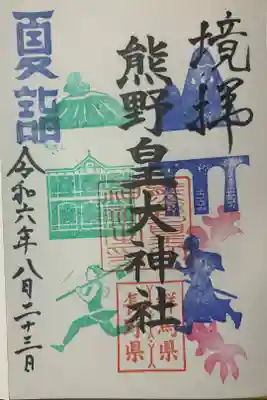 境拝
熊野皇大神社
夏詣
令和六年八月二十三日
群馬県
長野県